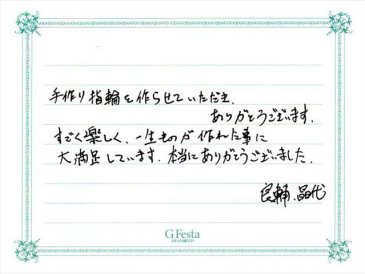 手作り指輪を作らせていただき、
ありがとうございます。
すごく楽しく、一生ものが作れた事に
大満足しています。本当にありがとうございました。
良輔、晶代
G.Festa